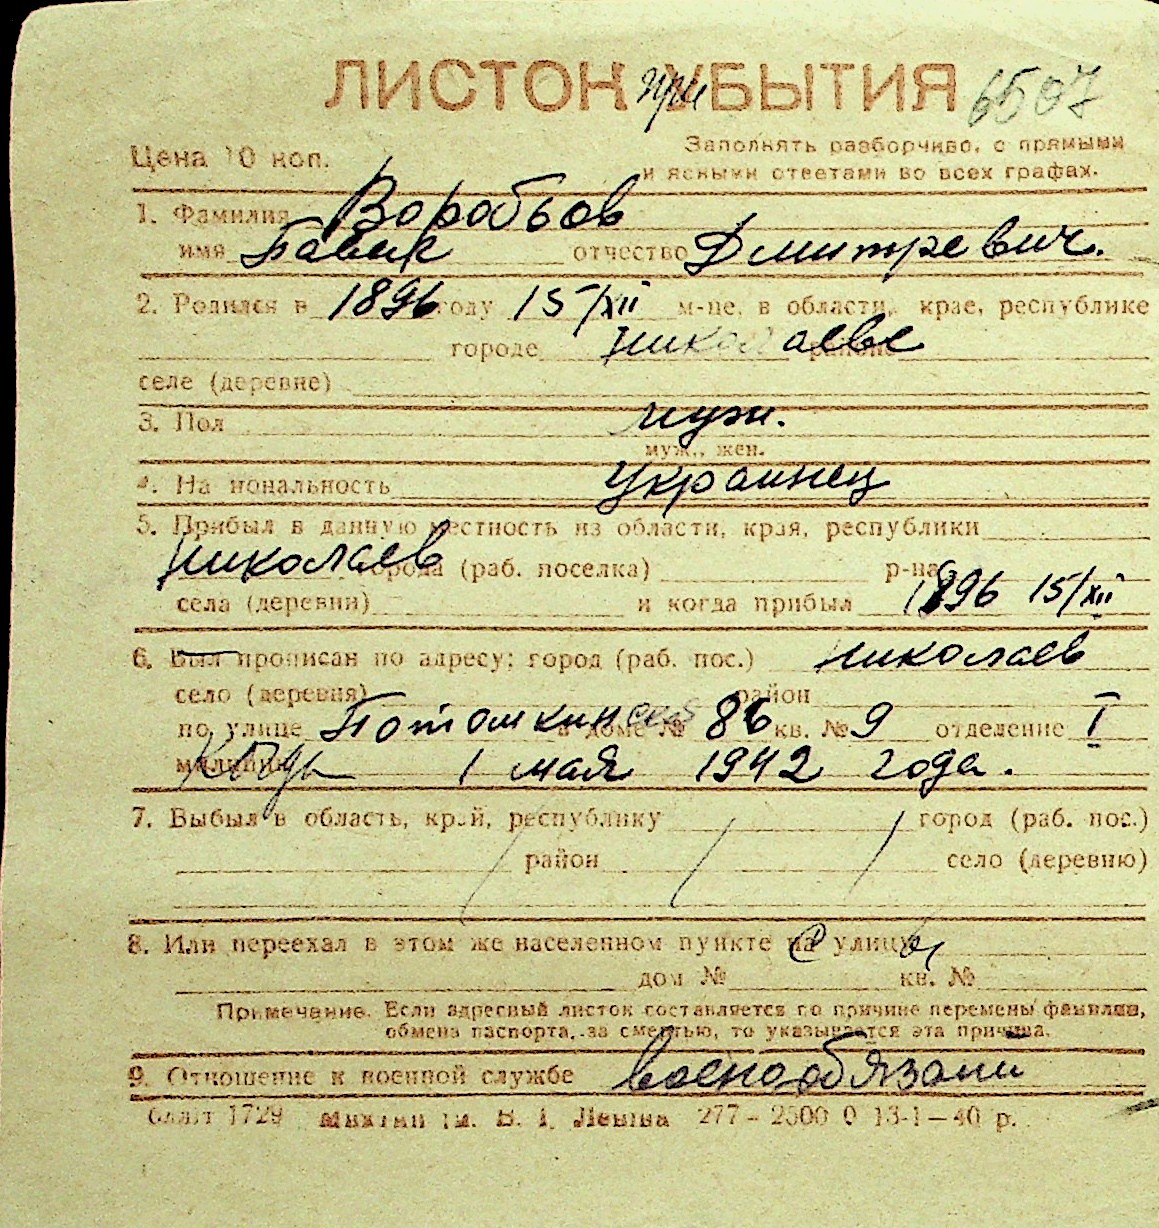 ЛИСТОК при УБЫТИЯ 6507
Цена 10 коп. Заполнять разборчиво, с прямыми
и ясными ответами во всех графах.
1. Фамилия Воробьов
имя Павик отчество Дмитревич.
2. Родился в 1896 году 15/XII м-це, в области, крае, республике
городе Николаеве районе
селе (деревне)
3. Пол муж.
муж., жен.
4. Национальность Украинец
5. Прибыл в данную местность из области, края, республики
Николаев города (раб. поселка) р-на
села (деревни) и когда прибыл 1896 15/XII
6. Был прописан по адресу: город (раб. пос.) Николаев
село (деревня) район
по улице Потомкинская в доме № 86 кв. № 9 отделение I
милиции 1 мая 1942 года.
7. Выбыл в область, край, республику город (раб. пос.)
район село (деревню)
8. Или переехал в этом же населенном пункте на улицу
дом № кв. №
Примечание. Если адресный листок составляется по причине перемены фамилии,
обмена паспорта, за смертью, то указывается эта причина.
9. Отношение к военной службе военообязани
1729 В. І. Леніна 277 - 2500 0 13-1-40 р.